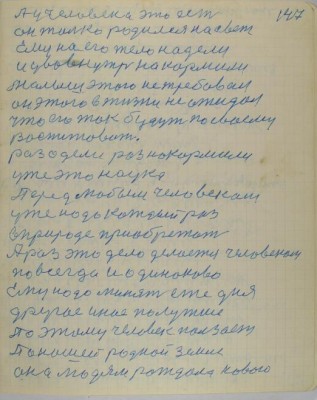 147
А у человека это есть
он только родился на свет
Ему на его тело надели
и у во внутрь накормили
Малыш этого не требовал
он этого в жизни не ожидал
что его так будут по своему
воспитовать.
раз одели раз накормили
уже это наука
Перед любым человекам
уже надо каждый раз
в природе приобретать
А раз это дело делается человекам
то всегда и одиноково
Ему надо менят еже дня
другое иное получше
По этому человек ползает
По нашей родной земле
она людям рождала нового